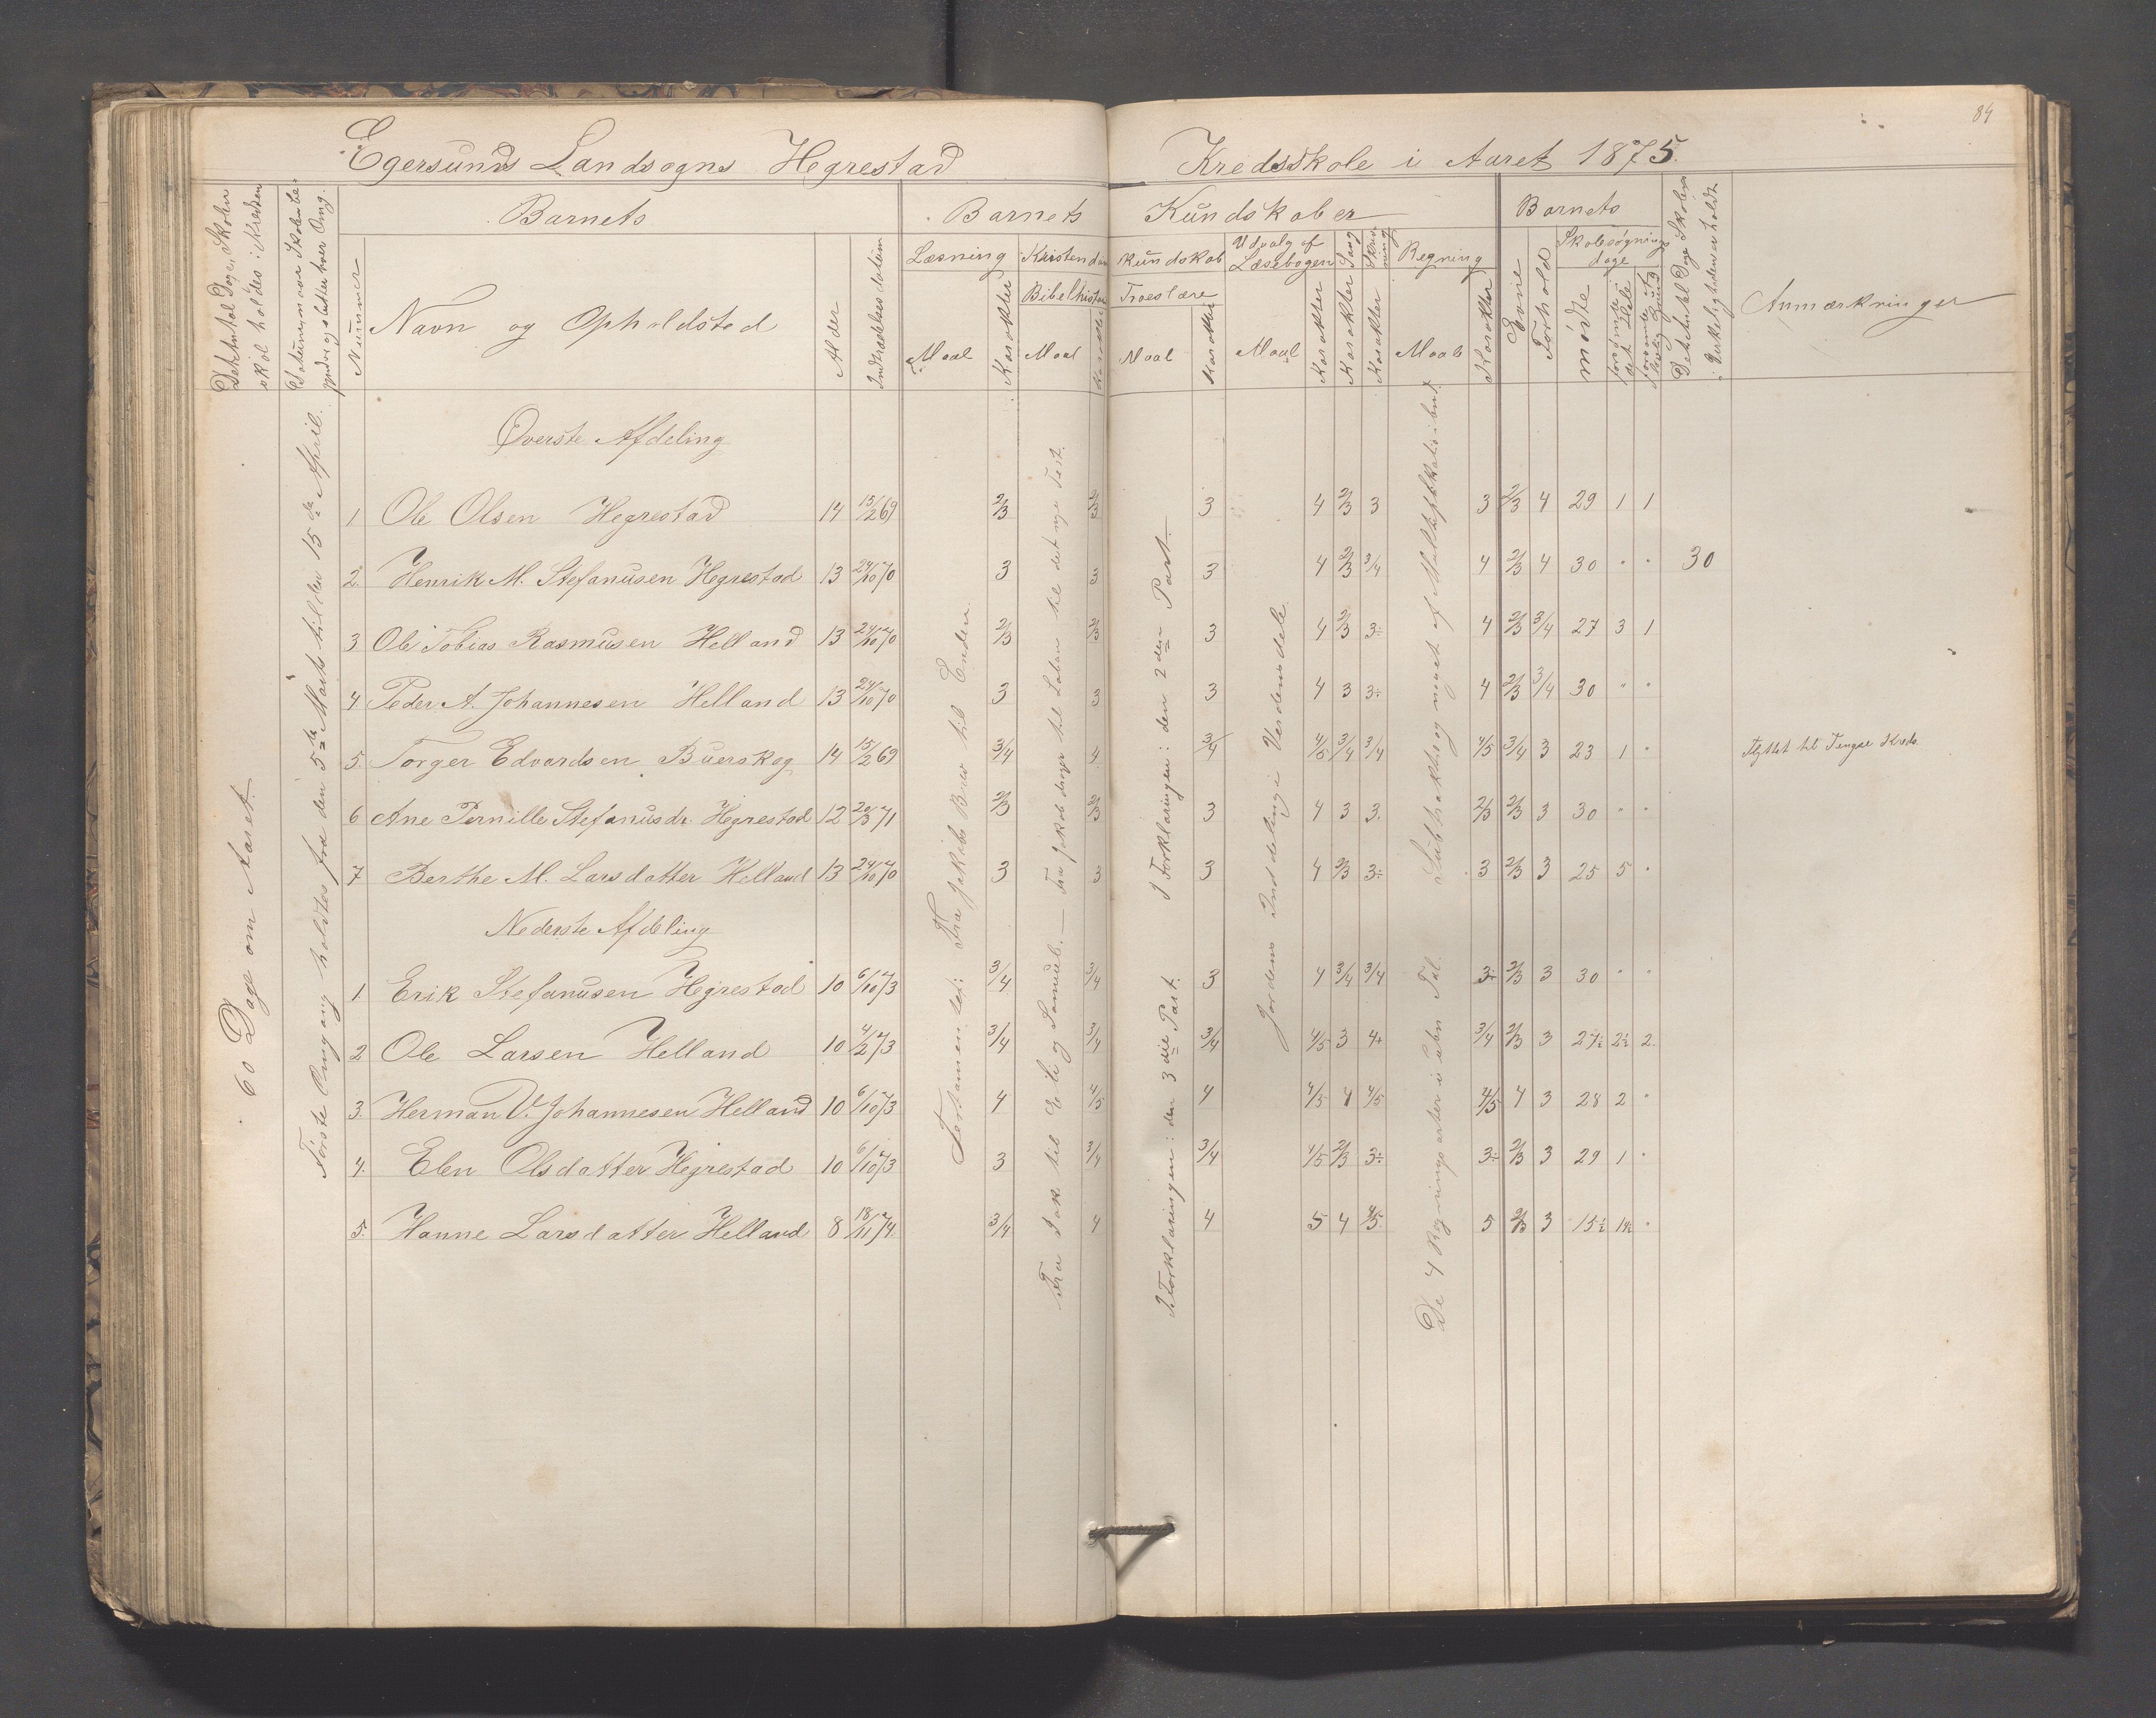 84
Egersunds Landsogns Hegrestad Kredsskole i Aaret 1875.
Det Antal Dage, Skolen skal holdes i Kredsen
Datum, naar Skolen begynder og slutter hver Omg.
Barnets
Nummer
Navn og Opholdsted
Alder
Indtrædelsesdatum
Barnets Kundskaber
Læsning
Maal
Karakter
Kristendomskundskab
Bibelhistorie
Maal
Karakter
Troeslære
Maal
Karakter
Udvalg af Læsebogen
Maal
Karakter
Sang
Karakter
Skrivning
Karakter
Regning
Maal
Karakter
Barnets
Evne
Forhold
Skolesøgningsdage
mødte
forsømte i det Hele
forsømte af lovlig Grund
Det Antal Dage Skolen i Virkeligheden er holdt
Anmærkninger
60 Dage om Aaret.
Første Omgang holdtes fra den 5te Marts til den 15de April.
Testamentet: Fra Jakobs Brev til Enden
Fra Job til Eli og Samuel. — Fra Jakob drager til Laban til det nye Test.
I Forklaringen: den 3die Part. I Forklaringen: den 2den Part.
Jordens Inddeling i Verdensdele
De 4 Regningsarter i ubn Tal. Subtraktion og noget af Multiplikation i bn.
Øverste Afdeling
1 Ole Olsen Hegrestad 14 15/2 69 2/3 2/3 3 4 2/3 3 3 2/3 4 29 1 1
2. Henrik M. Stefanusen Hegrestad 13 24/10 70 3 3 3 4 2/3 3/4 4 2/3 4 30 " " 30
3 Ole Tobias Rasmusen Helland 13 24/10 70 2/3 2/3 3 4 2/3 3÷ 4 2/3 3/4 27 3 1
4 Peder A. Johannesen Helland 13 24/10 70 3 3 3 4 3 3÷ 4 2/3 3/4 30 " "
5. Torger Edvardsen Buerskog 14 15/2 69 3/4 4 3/4 4/5 3/4 3/4 4/5 3/4 3 23 1 " Flyttet til Tengse Kreds
6 Ane Pernille Stefanusdr. Hegrestad 12 20/3 71 2/3 2/3 3 4 3 3. 2/3 2/3 3 30 " "
7 Berthe M. Larsdatter Helland 13 24/10 70 3 3 3 4 2/3 3÷ 3 2/3 3 25 5 "
Nederste Afdeling
1. Erik Stefanusen Hegrestad 10 6/10 73 3/4 3/4 3 4 3/4 3/4 3÷ 2/3 3 30 " "
2 Ole Larsen Helland 10 4/2 73 3/4 3/4 3/4 4/5 3 4+ 3/4 2/3 3 27½ 2½ 2.
3. Herman V. Johannesen Helland 10 6/10 73 4 4/5 4 4/5 4 4/5 4/5 4 3 28 2 "
4. Elen Olsdatter Hegrestad 10 6/10 73 3 3/4 3/4 4/5 2/3 3÷ 3÷ 2/3 3 29 1 "
5. Hanne Larsdatter Helland 8 18/11 74. 3/4 4 4 5 4 4/5 5 2/3 3 15½ 1½ "